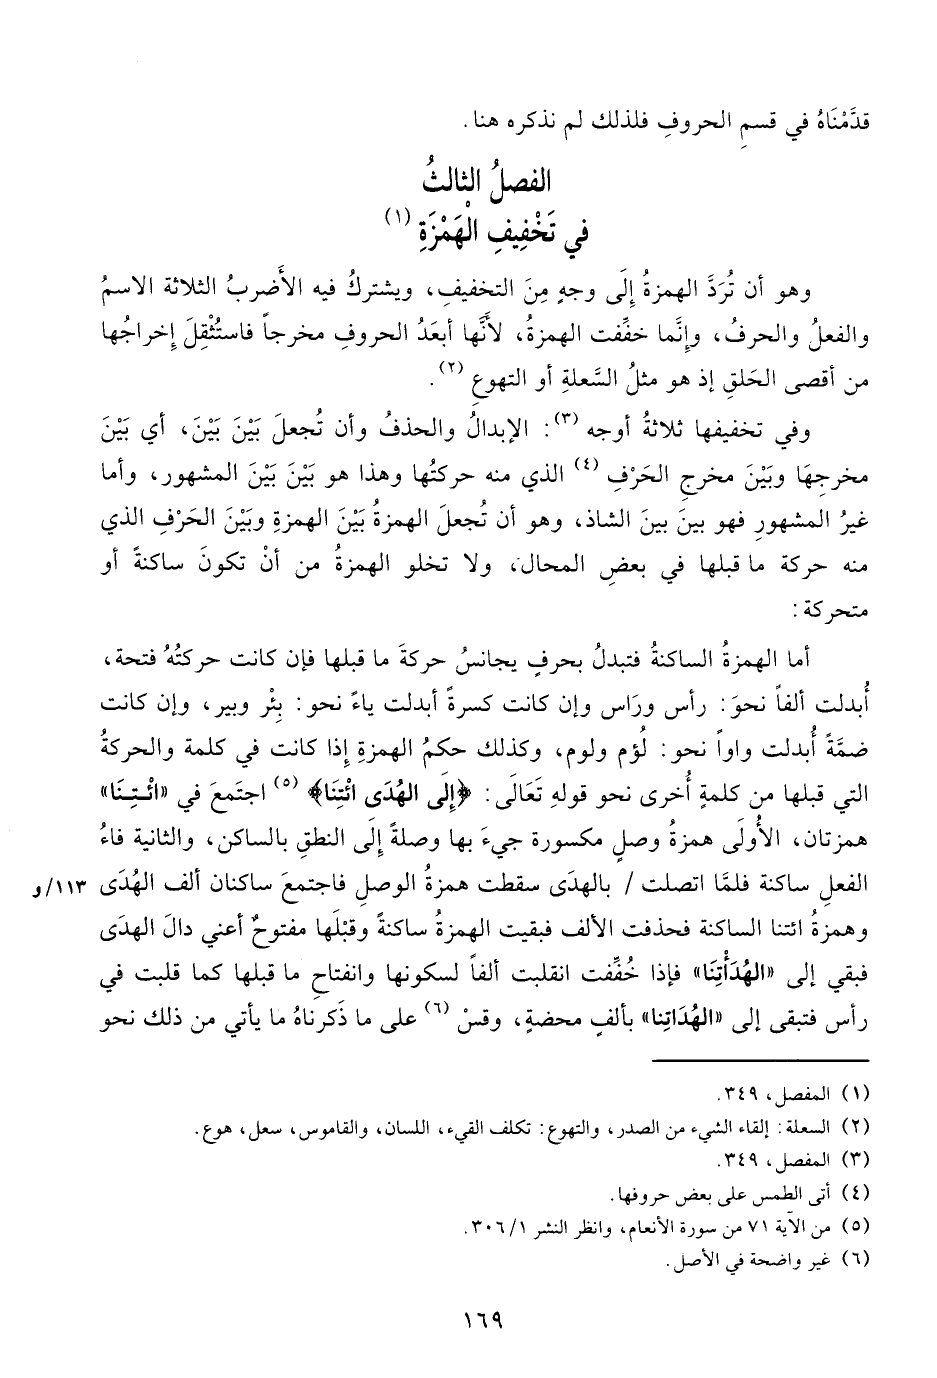 قدَّمْنَاهُ في قسمِ الحروفِ فلذلك لم نذكره هنا.
الفصلُ الثالثُ
في تَخْفِيفِ الْهَمْزَةِ (١)
وهو أن تُرَدَّ الهمزةُ إِلَى وجهٍ مِنَ التخفيفِ، ويشتركُ فيه الأَضربُ الثلاثة الاسمُ
والفعلُ والحرفُ، وإِنَّما خفِّفت الهمزةُ، لأَنَّها أبعَدُ الحروفِ مخرجاً فاستُثْقِلَ إِخراجُها
من أقصى الحَلقِ إذ هو مثلُ السَّعلةِ أو التهوعِ (٢).
وفي تخفيفها ثلاثةُ أوجه (٣): الإبدالُ والحذفُ وأن تُجعلَ بَيْنَ بَيْنَ، أي بَيْنَ
مخرجِهَا وبَيْنَ مخرجِ الحَرْفِ (٤) الذي منه حركتُها وهذا هو بَيْنَ بَيْنَ المشهور، وأما
غيرُ المشهورِ فهو بينَ بينَ الشاذ، وهو أن تُجعلَ الهمزةُ بَيْنَ الهمزةِ وبَيْنَ الحَرْفِ الذي
منه حركة ما قبلها في بعضِ المحال، ولا تخلو الهمزةُ من أنْ تكونَ ساكنةً أو
متحركة:
أما الهمزةُ الساكنةُ فتبدلُ بحرفٍ يجانسُ حركةَ ما قبلها فإن كانت حركتُهُ فتحة،
أُبدلت ألفاً نحوَ: رأس ورَاس وإن كانت كسرةً أبدلت ياءً نحو: بِئْر وبير، وإن كانت
ضمَّةً أُبدلت واواً نحو: لُؤم ولوم، وكذلك حكمُ الهمزةِ إِذا كانت في كلمة والحركةُ
التي قبلها من كلمةٍ أُخرى نحو قولهِ تَعَالَى: ﴿إِلَى الهُدَى ائْتِنَا﴾ (٥) اجتمعَ في «ائْـتِـنَا»
همزتان، الأُولَى همزةُ وصلٍ مكسورة جيءَ بها وصلةً إِلَى النطقِ بالساكن، والثانية فاءُ
الفعلِ ساكنة فلمَّا اتصلت / بالهدَى سقطت همزةُ الوصلِ فاجتمعَ ساكنان ألف الهُدَى ١١٣/و
وهمزةُ ائتنا الساكنة فحذفت الألف فبقيت الهمزةُ ساكنةً وقبْلَها مفتوحٌ أعني دالَ الهدَى
فبقي إلى «الهُدَأْتِنَا» فإذا خُفِّفت انقلبت ألفاً لسكونها وانفتاحِ ما قبلها كما قلبت في
رأس فتبقى إلى «الهُدَاتِنا» بألفٍ محضةٍ، وقسْ (٦) على ما ذَكرناهُ ما يأتي من ذلك نحو
(١) المفصل، ٣٤٩.
(٢) السعلة: إلقاء الشيء من الصدر، والتهوع: تكلف القيء، اللسان، والقاموس، سعل، هوع.
(٣) المفصل، ٣٤٩.
(٤) أتى الطمس على بعض حروفها.
(٥) من الآية ٧١ من سورة الأنعام، وانظر النشر ٣٠٦/١.
(٦) غير واضحة في الأصل.
١٦٩